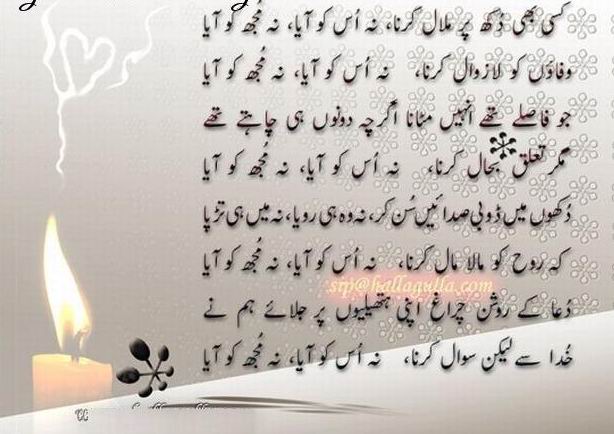 کسی بھی دُکھ پر ملال کرنا، نہ اُس کو آیا، نہ مُجھ کو آیا
وفاؤں کو لازوال کرنا، نہ اُس کو آیا، نہ مُجھ کو آیا
جو فاصلے تھے انہیں مٹانا اگرچہ دونوں ہی چاہتے تھے
مگر تعلق بحال کرنا، نہ اُس کو آیا، نہ مُجھ کو آیا
دُکھوں میں ڈوبی صدائیں سُن کر، نہ وہ ہی رویا، نہ میں ہی تڑپا
کہ روح کو مالا مال کرنا، نہ اُس کو آیا، نہ مُجھ کو آیا
srp@hallagulla.com
دُعا کے روشن چراغ اپنی ہتھیلیوں پر جلائے ہم نے
خُدا سے لیکن سوال کرنا، نہ اُس کو آیا، نہ مُجھ کو آیا